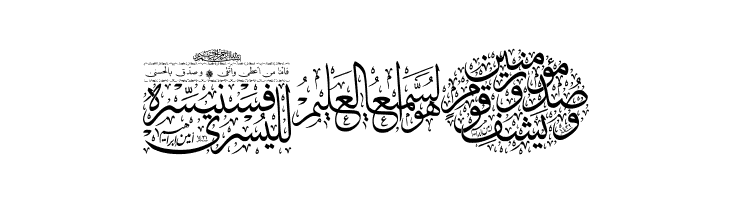 ويشف صدور قوم مؤمنين
هو السميع العليم
فأما من أعطى واتقى وصدق بالحسنى
فسنيسره لليسرى